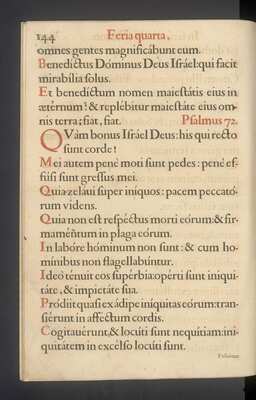 144 Feria quarta,
omnes gentes magnificábunt eum.
Benedíctus Dóminus Deus Iſráel: qui facit
mirabília ſolus.
Et benedíctum nomen maieſtátis eius in
ætérnum: & replébitur maieſtáte eius om-
nis terra; fiat, fiat. Pſalmus 72.
QVàm bonus Iſráel Deus: his qui recto
ſunt corde!
Mei autem penè moti ſunt pedes: penè ef-
fúſi ſunt greſſus mei.
Quia zeláui ſuper iníquos: pacem peccató-
rum videns.
Quia non eſt reſpéctus morti eórum: & fir-
maméntum in plaga eórum.
In labóre hóminum non ſunt: & cum ho-
mínibus non flagellabúntur.
Ideò ténuit eos ſupérbia: opérti ſunt iniqui-
táte, & impietáte ſua.
Pródiit quaſi ex ádipe iníquitas eórum: tran-
ſiérunt in affectum cordis.
Cogitauérunt, & locúti ſunt nequítiam: ini-
quitátem in excélſo locúti ſunt.